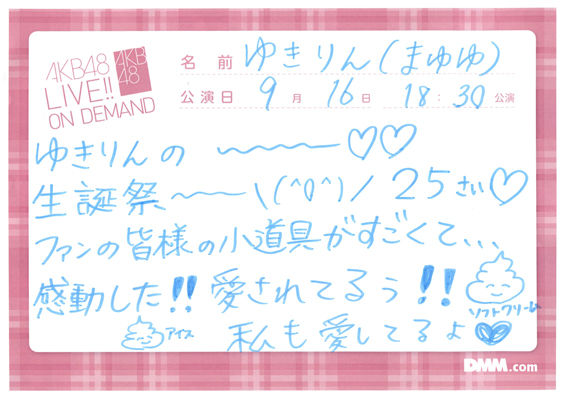 AKB48
LIVE!!
ON DEMAND
AKB
48
名前 ゆきりん(まゆゆ)
公演日 9月 16日 18:30公演
ゆきりんの 〜〜〜〜♡♡
生誕祭〜〜\(^0^)/ 25さい♡
ファンの皆様の小道具がすごくて、、、
感動した!! 愛されてるぅ!!
ソフトクリーム
アイス 私も愛してるよ♥
DMM.com